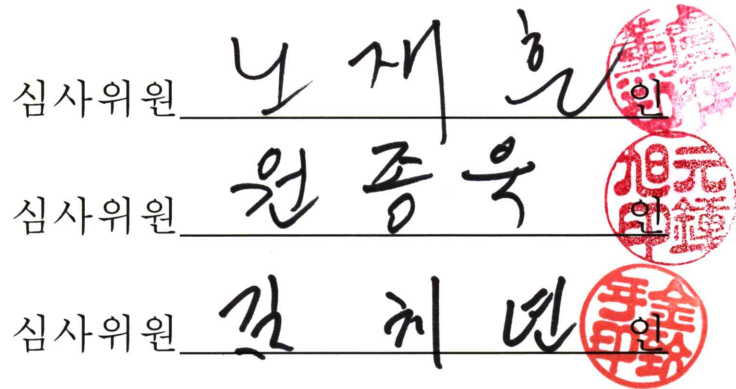 심사위원 노재훈 인
심사위원 원종욱 인
심사위원 김치년 인